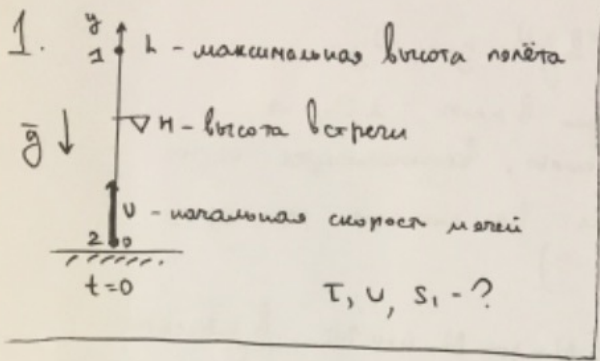 1.
y
1 L - максимальная высота полёта
g ↓
H - высота встречи
υ - начальная скорость мячей
2 0
t=0
τ, υ, S₁ - ?